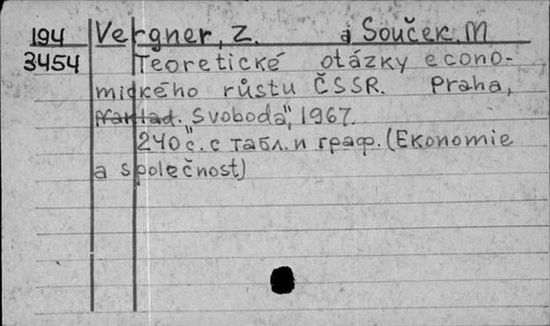 194 Vergner, Z. a Souček, M
3454 Teoretické otázky econo-
mického růstu ČSSR. Praha,
"Svoboda", 1967.
240 с. с табл. и граф. (Ekonomie
a společnost)